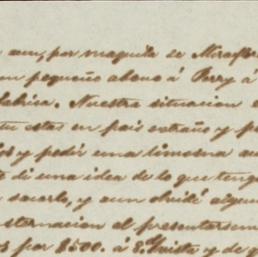 aun, por maquila se Miraflor
un pequeño abono á Perry á
fabrica. Nuestra situacion e
tu estas en pais extraño y p
os y pedir una limosna au
te di una idea de lo que teng
sacarlo, y aun olvidé algun
sternacion al presentarsem
s por $500. á E. Guista y de g